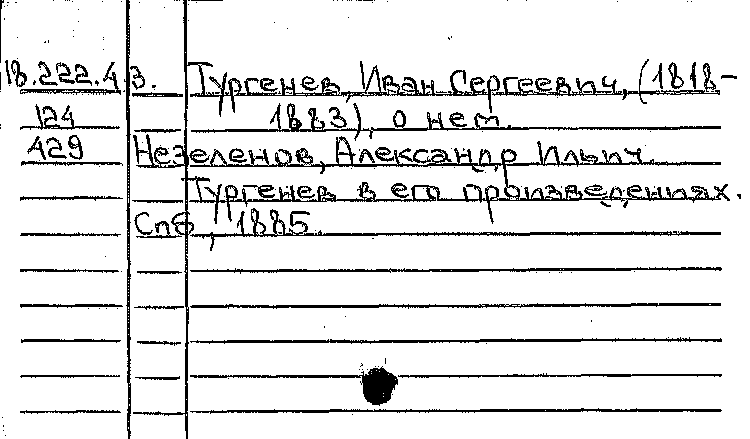 18.222.4.3. Тургенев, Иван Сергеевич, (1818-
124 1883), о нем.
429 Незеленов, Александр Ильич.
Тургенев в его произведениях.
Спб, 1885.